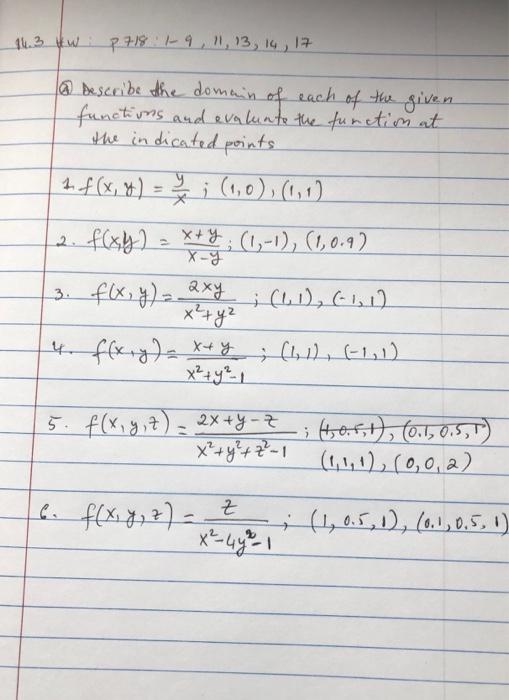 14.3 HW: p 718: 1-9, 11, 13, 14, 17
ⓐ Describe the domain of each of the given
functions and evaluate the function at
the indicated points
1. f(x, y) = y/x ; (1,0), (1,1)
2. f(x,y) = x+y/x-y ; (1,-1), (1,0.9)
3. f(x,y) = 2xy/x²+y² ; (1,1), (-1,1)
4. f(x,y) = x+y/x²+y²-1 ; (1,1), (-1,1)
5. f(x,y,z) = 2x+y-z/x²+y²+z²-1 ; (1,0.5,1), (0.1,0.5,1)
(1,1,1), (0,0,2)
6. f(x,y,z) = z/x²-4y²-1 ; (1,0.5,1), (0.1,0.5,1)